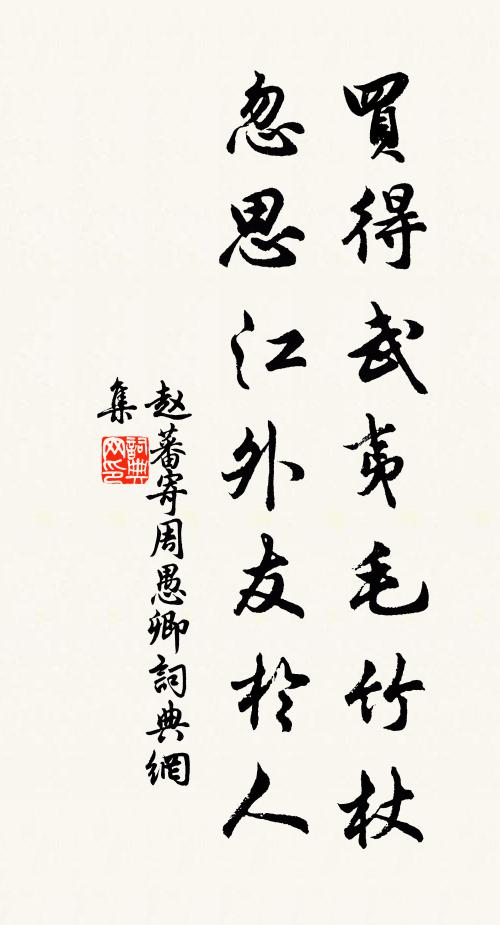 買得武夷毛竹杖
忽思江外友於人
赵蕃寄周愚卿詞典網
集
詞典
网印